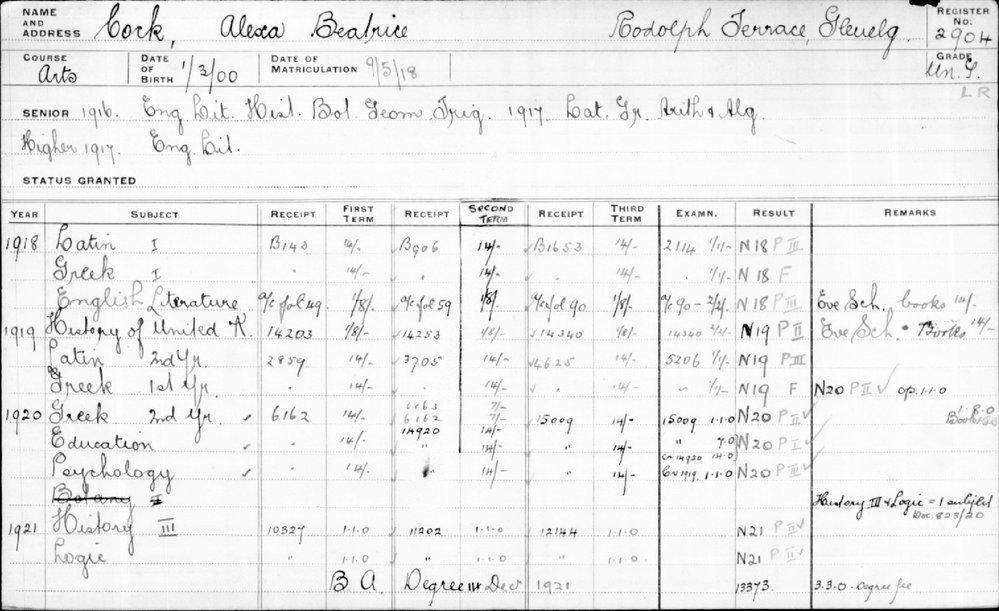 NAME AND ADDRESS Cock, Alexa Beatrice Rodolph Terrace, Glenelg. REGISTER No. 2904
COURSE Arts DATE OF BIRTH 1/3/00 DATE OF MATRICULATION 9/5/18 GRADE Un. G.
LR
SENIOR 1916. Eng Lit. Hist. Bot Geom. Trig. 1917. Lat. Gr. Arith & Alg.
Higher 1917. Eng. Lit.
STATUS GRANTED
YEAR SUBJECT RECEIPT FIRST TERM RECEIPT SECOND TERM RECEIPT THIRD TERM EXAMN. RESULT REMARKS
1918 Latin I B143 14/- B906 14/- B1653 14/- 2114 1/1/- N18 P III
Greek I " 14/- " 14/- " 14/- " 1/1/- N18 F
English Literature a/c fol 49 1/8/- a/c fol 59 1/8/- a/c fol 90 1/8/- a/c 90 - 2/2/- N18 P III Eve Sch. books 14/-
1919 History of United K. 14203 1/8/- 14253 1/8/- 14340 1/8/- 14340 2/2/- N19 P II Eve Sch. Books 14/-
Latin 2nd Yr. 2859 14/- 3705 14/- 4625 14/- 5206 1/1/- N19 P III
Greek 1st Yr. " 14/- " 14/- " 14/- " 1/1/- N19 F N20 P II ✓ op. 1.1.0
1920 Greek 2nd Yr. ✓ 6162 14/- 6163 6162 7/- 7/- 15009 14/- 15009 1.1.0 N20 P II ✓ 1.8.0
Education ✓ " 14/- 14920 " 14/- " 14/- " 7.0 Cn 14920 14.0 N20 P I ✓
Psychology ✓ " 14/- " 14/- " 14/- Cn 1919. 1.1.0 N20 P III ✓
Botany I
History III & Logic = 1 subject
Doc. 823/20
1921 History III 10327 1.1.0 11202 1.1.0 12144 1.1.0 N21 P II ✓
Logic " 1.1.0 " 1.1.0 " 1.1.0 N21 P II ✓
B.A. Degree 14 Dec 1921 13373. 3.3.0. Degree fee